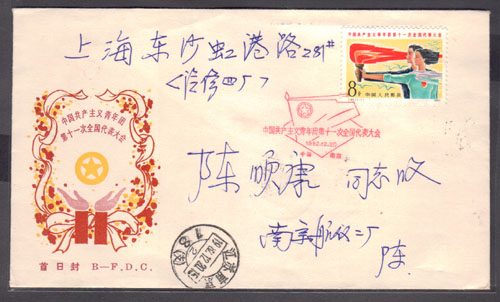 上海东沙虹港路281#
<汽修四厂>
中国共产主义青年团第十一次全国代表大会
8分
中国人民邮政
中国共产主义青年团
第十一次全国代表大会
中国共产主义青年团第十一次全国代表大会
1982.12.20
中国
陈顺康 同志收
南京
陈
首日封 B—F.D.C.